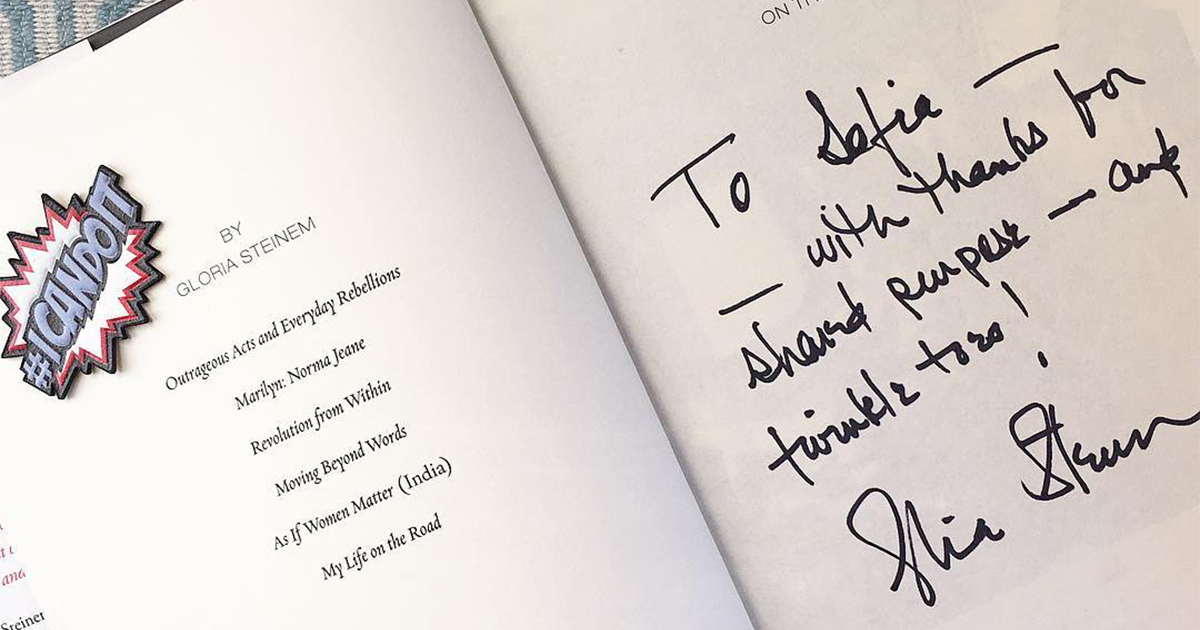 #ICANDOIT
BY
GLORIA STEINEM
Outrageous Acts and Everyday Rebellions
Marilyn: Norma Jeane
Revolution from Within
Moving Beyond Words
As If Women Matter (India)
My Life on the Road
and
Steiner
ON
To Sofia —
— with thanks for
shared purpose — and
twinkle toes!
Gloria Steinem